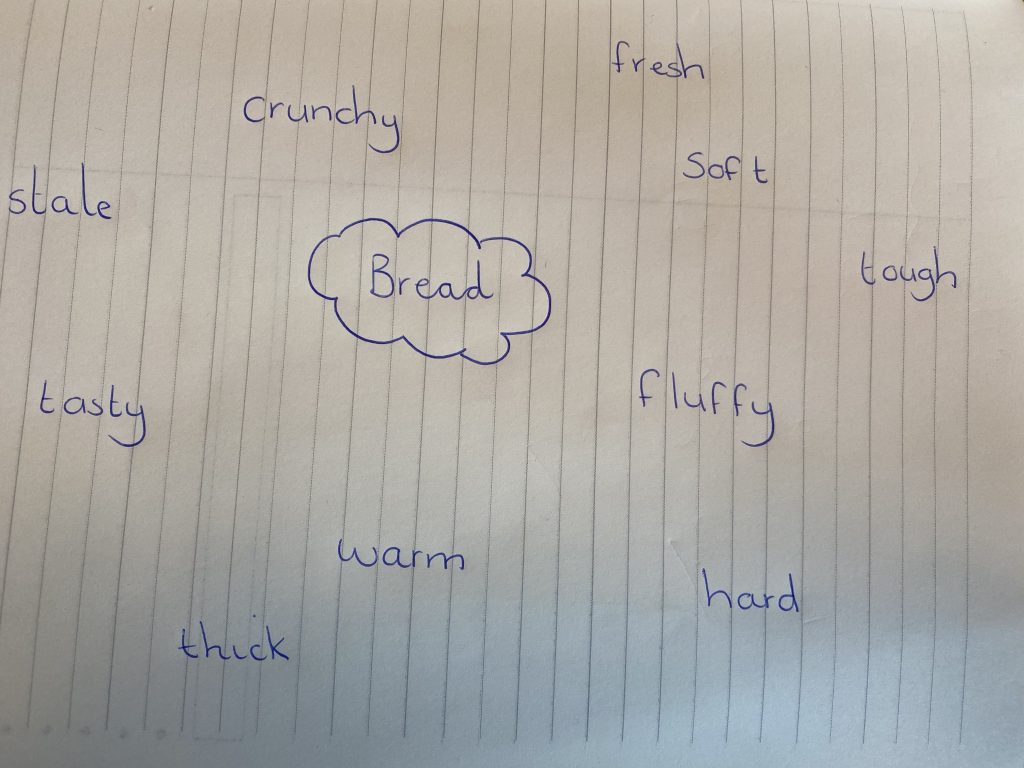 fresh
crunchy
soft
stale
Bread
tough
tasty
fluffy
warm
hard
thick